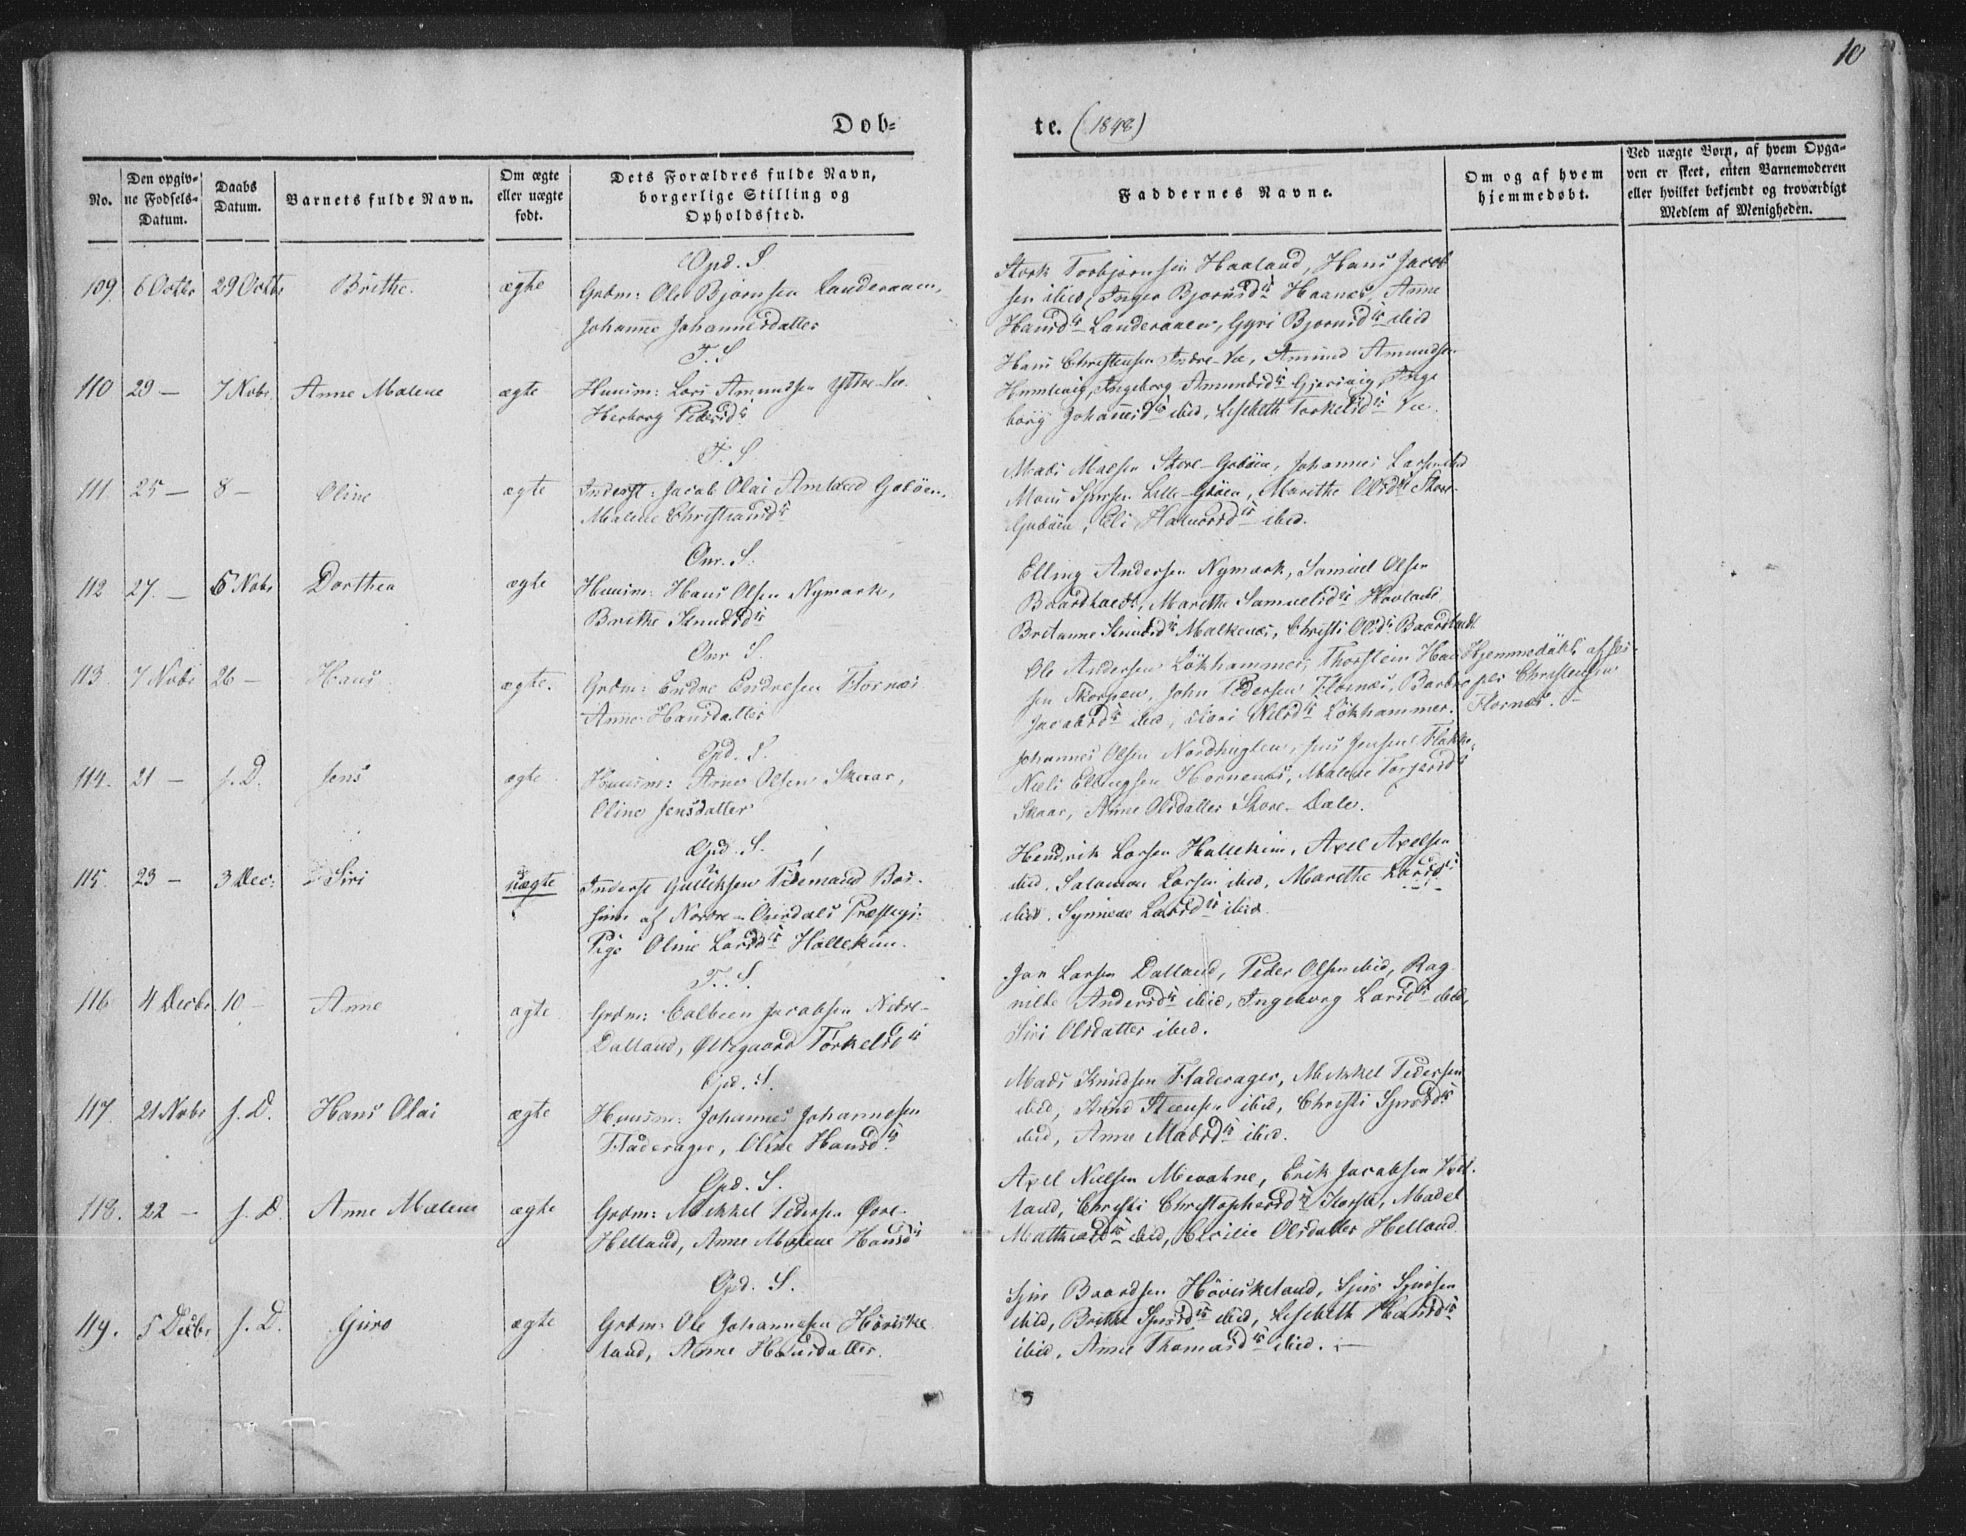 10
Dob- te. (1848)
No.
Den opgiv-
ne Fodsels-
Datum.
Daabs
Datum.
Barnets fulde Navn.
Om ægte
eller uægte
fodt.
Dets Forældres fulde Navn,
borgerlige Stilling og
Opholdssted.
Faddernes Navne.
Om og af hvem
hjemmedøbt.
Ved uægte Born, af hvem Opga-
ven er skeet, enten Barnemoderen
eller hvilket bekjendt og troværdigt
Medlem af Menigheden.
Opd. S
109 6 Octbr 29 Octbr Brithe. ægte
Grdm: Ole Bjørnsen Landeraaen,
Johanne Johannesdatter
Stork Torbjørnsen Haaland, Hans Jacob
sen ibid, Inger Bjørnsd Haanes, Anne
Hansd Landeraaen, Gyri Bjørnsd ibid
T. S
110 29 — 7 Nobr. Anne Malene ægte
Huusm: Lars Amundsen Yttre-Vee
Herborg Pedersd
Hans Christensen Indre-Vee, Amund Amundsen
Humlevig, Ingeborg Amundsd Gjersvig, Inge
borg Johannesd ibid, Lisebeth Torkelsd Vee.
T. S
111 25 — 8 — Oline ægte
Inderst: Jacob Olai Amland Gobøen,
Malene Christiansd
Mads Madsen Store-Gobøen, Johannes Larsen ibid
Mons Sjursen Lille-Gobøen, Marithe Olsd Store-
Gobøen, Eli Halvorsd ibid.
Onr. S.
112 27. — 5 Nobr Dorthea ægte
Huusm: Hans Olsen Nymark,
Brithe Knudsd
Elling Andersen Nymark, Samuel Olsen
Baardtvedt, Marithe Samuelsd Hovland
Britanne Knudsd Malkenes, Christi Olsd Baardtvedt
Onr S.
113. 7 Nobr 26 — Hans ægte.
Grdm: Endre Endresen Flornæs
Anne Hansdatter
Ole Andersen Løkhammer, Thorstein Han
sen Skorpen, John Pedersen Flornæs, Barbro
Jacobsd ibid, Kari Nilsd Løkhammer.
Hjemmedøbt af Jes-
per Christensen
Flornæs. —
Opd. S.
114. 21 — s. D. Jens ægte
Huusm: Arne Olsen Skaar,
Oline Jensdatter
Johannes Olsen Nordhuglen, Jens Jensen Flakke,
Niels Ellingsen Hornenes, Malene Torgersd
Skaar, Anne Olsdatter Store-Dale.
Opd. S.
115. 23 — 3 Dec: Siri uægte
Inderst Gulliksen Tidemand
af Nordre-Præstegj:
Pige Oline Larsd Hallekim.
Hendrik Larsen Hallekim, Axel Axelsen
ibid, Salomon Larsen ibid, Marethe Larsd
ibid, Synneve Larsd ibid.
T. S.
116 4 Decbr. 10 — Anne ægte
Grdm: Colbeen Jacobsen Nedre-
Dalland, Øllegaard Torkelsd
Jon Larsen Dalland, Peder Olsen ibid, Rag
nilde Andersd ibid, Ingeborg Larsd ibid,
Siri Olsdatter ibid.
Opd. S.
117. 21 Nobr s. D. Hans Olai ægte
Huusm: Johannes Johannesen
Fladerager, Oline Hansd
Mads Knudsen Fladerager, Mikkel Pedersen
ibid, Knud Steensen ibid, Christi Sjursd
ibid, Anne Madsd ibid.
Opd. S.
118. 22 — s. D. Anne Malene ægte
Grdm: Mikkel Pedersen Øvre-
Helland, Anne Malene Hansd
Axel Nielsen Mevatne, Erik Jacobsen Hel
land, Christi Christophersd, Madel
Mathiasd ibid, Cecilie Olsdatter Helland
Opd. S.
119. 5 Decbr s. D. Guro ægte
Grdm: Ole Johannesen Høviske
land, Anne Hansdatter.
Sjur Baardsen Høviskeland, Sjur Sjursen
ibid, Brithe Sjursd ibid, Lisebeth Hansd
ibid, Anne Thomasd ibid. —